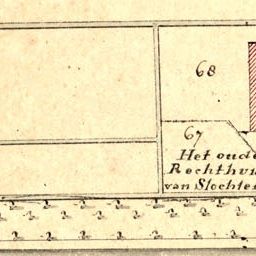 68
67
Het oude
Rechthui
van Slochte